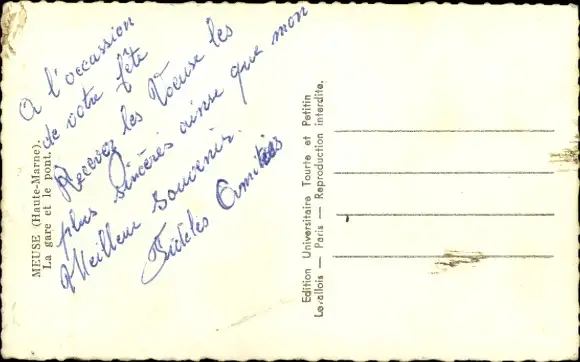 A l'occassion
de votre fête
Recevez les Voeuse les
plus sincères ainse que mon
Meilleur souvenir.
Fidèles Amitiés
MEUSE (Haute-Marne).
La gare et le pont.
Edition Universitaire Tourte et Petitin
Levallois — Paris — Reproduction interdite.